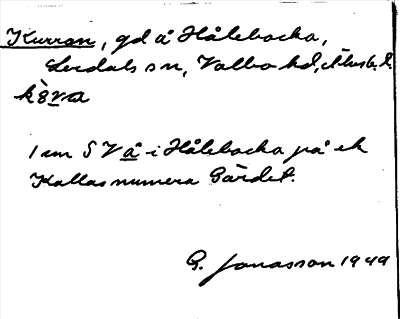 Kurran, gd å Hålebacka,
Lerdals sn, Valbo hd, Älvsb. l.
1 cm S V å i Hålebacka på ek
Kallas numera Gärdet.
G. Jonasson 1949